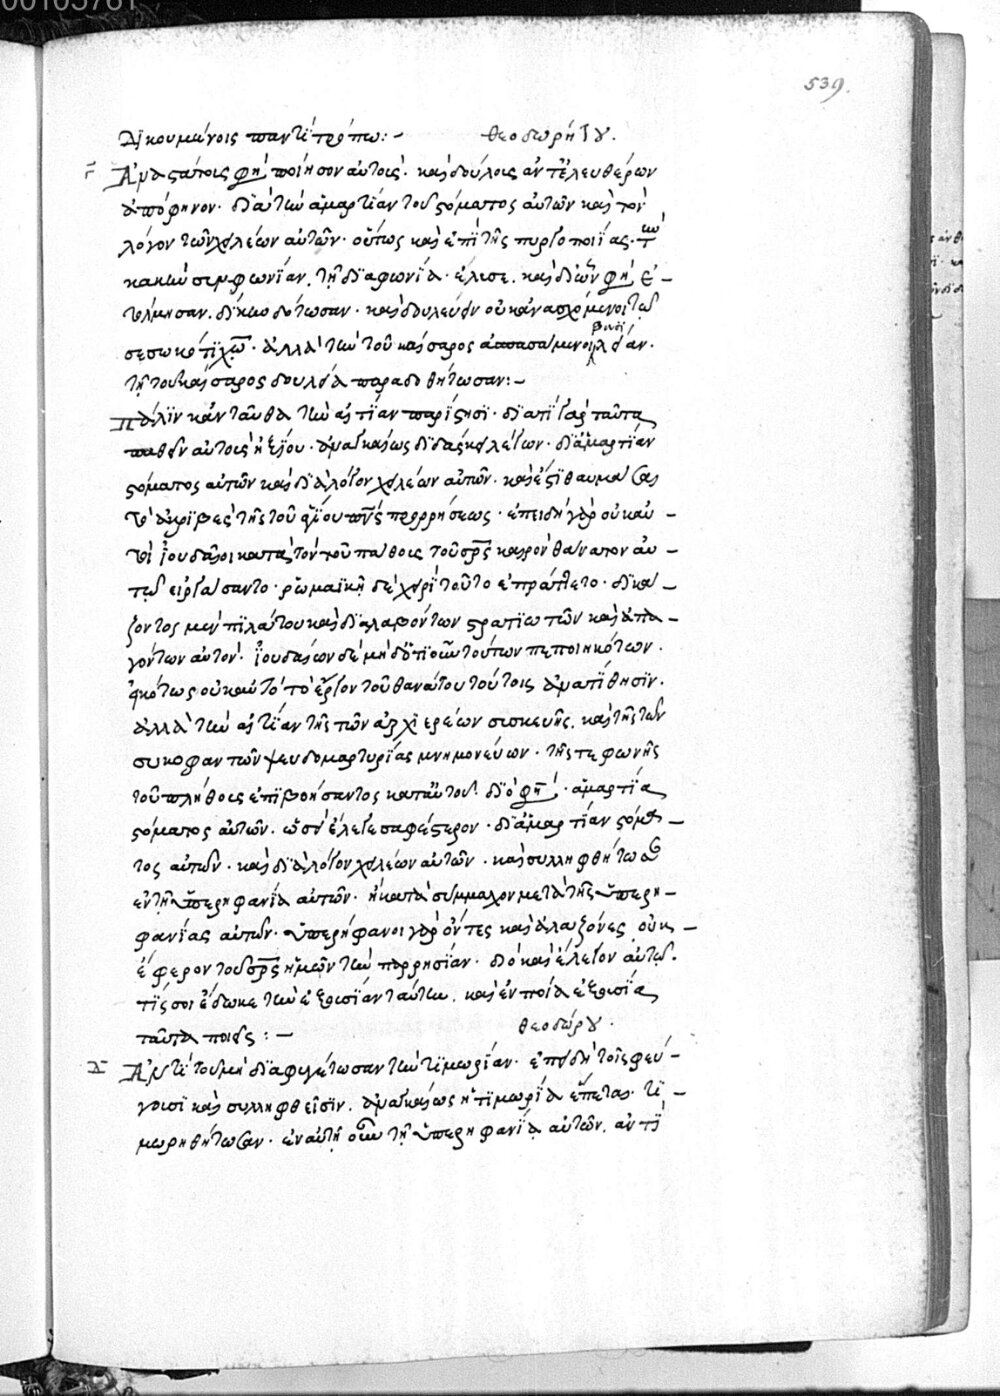 00103761
539.
δικουμένοις παντὶ τρόπω:– θεοδωρήτου.
γ Ἀναστάτοις φησὶ ποίησον αὐτούς· καὶ δούλοις ἀντ' ἐλευθέρων
ἀπόφηνον· διὰ τὴν ἁμαρτίαν τοῦ στόματος αὐτῶν καὶ τὸν
λόγον τῶν χειλέων αὐτῶν· οὕτως καὶ ἐπὶ τῆς πυργοποιΐας· τὴν
κακὴν συμφωνίαν, τῇ διαφωνία ἔλυσε. καὶ δι' ὧν φησὶ ἐ–
τόλμησαν. δίκην δότωσαν· καὶ δουλεύειν οὐκ ἀνασχόμενοι τῶ
σεσωκότι χω· ἀλλὰ τὴν τοῦ καίσαρος ἀσπασάμενοι βασιλείαν.
τῇ τοῦ καίσαρος δουλεία παραδοθήτωσαν:–
Πάλιν κἀνταῦθα τὴν αἰτίαν παρίστησι· δι' ἅπερ ταῦτα
παθεῖν αὐτοὺς ἠξίου· ἀναγκαίως διδάσκει λέγων· δι' ἁμαρτίαν
στόματος αὐτῶν καὶ διὰ λόγον χειλέων αὐτῶν· καὶ ἔστι θαυμάσαι
τὸ ἀκριβὲς τῆς τοῦ ἁγίου πνς προρρήσεως· ἐπειδὴ γὰρ οὐκ αὐ–
τοὶ ἰουδαῖοι κατὰ τὸν τοῦ πάθους τοῦ σρς καιρὸν θάνατον αὐ–
τῶ εἰργάσαντο· ῥωμαϊκῇ δὲ χειρὶ τοῦτο ἐπράττετο· δικά–
ζοντος μὲν πιλάτου καὶ διαλαβόντων στρατιωτῶν καὶ ἀπα–
γόντων αὐτόν· ἰουδαίων δὲ μηδέτι οὖν τούτων πεποιηκότων.
εἰκότως οὐκ αὐτὸ τὸ ἔργον τοῦ θανάτου τούτοις ἀνατίθησιν.
ἀλλὰ τὴν αἰτίαν τῆς τῶν ἀρχιερέων συσκευῆς. καὶ τῆς τῶν
συκοφαντῶν ψευδομαρτυρίας μνημονεύων· τῆς τε φωνῆς
τοῦ πλήθους ἐπιβοήσαντος κατ' αὐτοῦ· διό φησί· ἁμαρτία
στόματος αὐτῶν· ὡσεὶ ἔλεγε σαφέστερον· δι' ἁμαρτίαν στόμα–
τος αὐτῶν· καὶ διὰ λόγον χειλέων αὐτῶν· καὶ συλληφθήτωσαν
ἐν τῇ ὑπερηφανία αὐτῶν· ἢ κατὰ σύμμαχον μετὰ τῆς ὑπερη–
φανίας αὐτῶν· ὑπερήφανοι γὰρ ὄντες καὶ ἀλαζόνες οὐκ –
ἔφερον τοῦ σρς ἡμῶν τὴν παρρησίαν· διὸ καὶ ἔλεγον αὐτῶ.
τίς σοι ἔδωκε τὴν ἐξουσίαν ταύτην. καὶ ἐν ποία ἐξουσία
ταῦτα ποιεῖς:– θεοδώρου.
δ Ἀντὶ τοῦ μὴ διαφυγέτωσαν τὴν τιμωρίαν· ἐπειδὴ τοῖς φεύ–
γουσι καὶ συλληφθεῖσιν. ἀναγκαίως ἡ τιμωρία ἕπεται· τι–
μωρηθήτωσαν· ἐν αὐτῇ οὖν τῇ ὑπερηφανία αὐτῶν. ἀντὶ